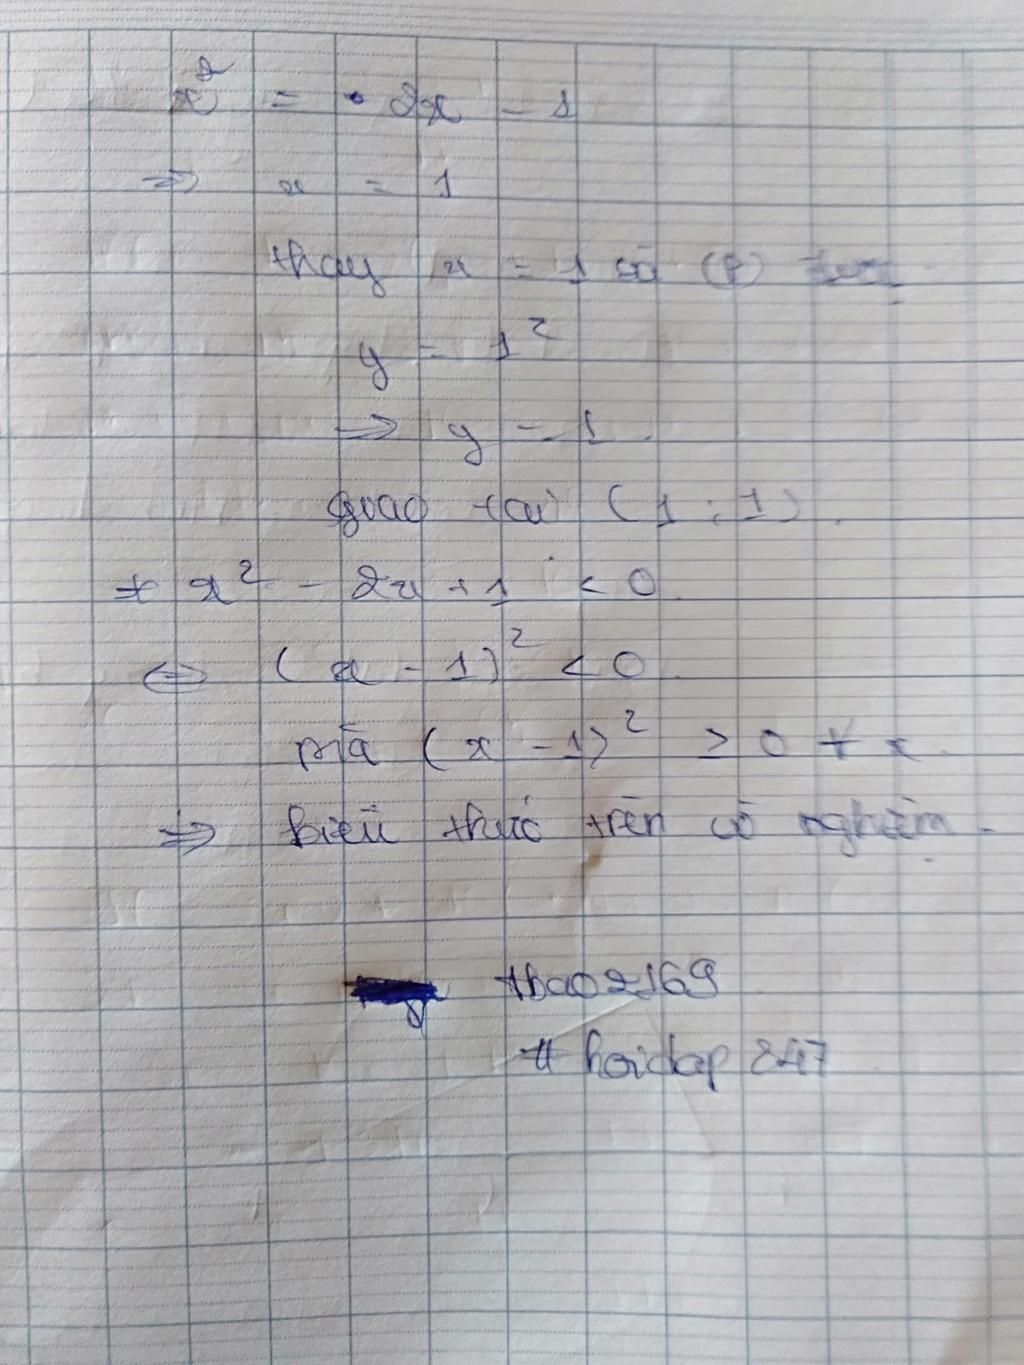 x² = 2x - 1
=> x = 1
thay x = 1 vào (P)
y = 1²
=> y = 1
giao tại (1 ; 1).
+ x² - 2x + 1 < 0
<=> (x - 1)² < 0
mà (x - 1)² > 0 ∀ x.
=> biểu thức trên có nghiệm.
thao2169
# hoidap 247